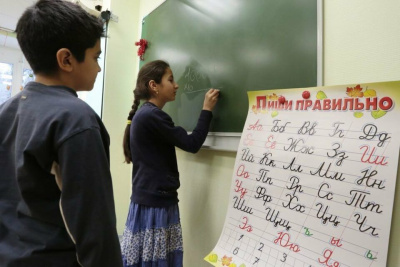 Пиши правильно
Аа Бб Вв Гг Дд
Ее Ёё Жж Зз Ии
Йй Кк Лл Мм Нн
Оо Пп Рр Сс Тт
Уу Фф Хх Цц Чч
Шш Щщ ъ ы ь
Ээ Юю Яя
1 2 3 4
6 7